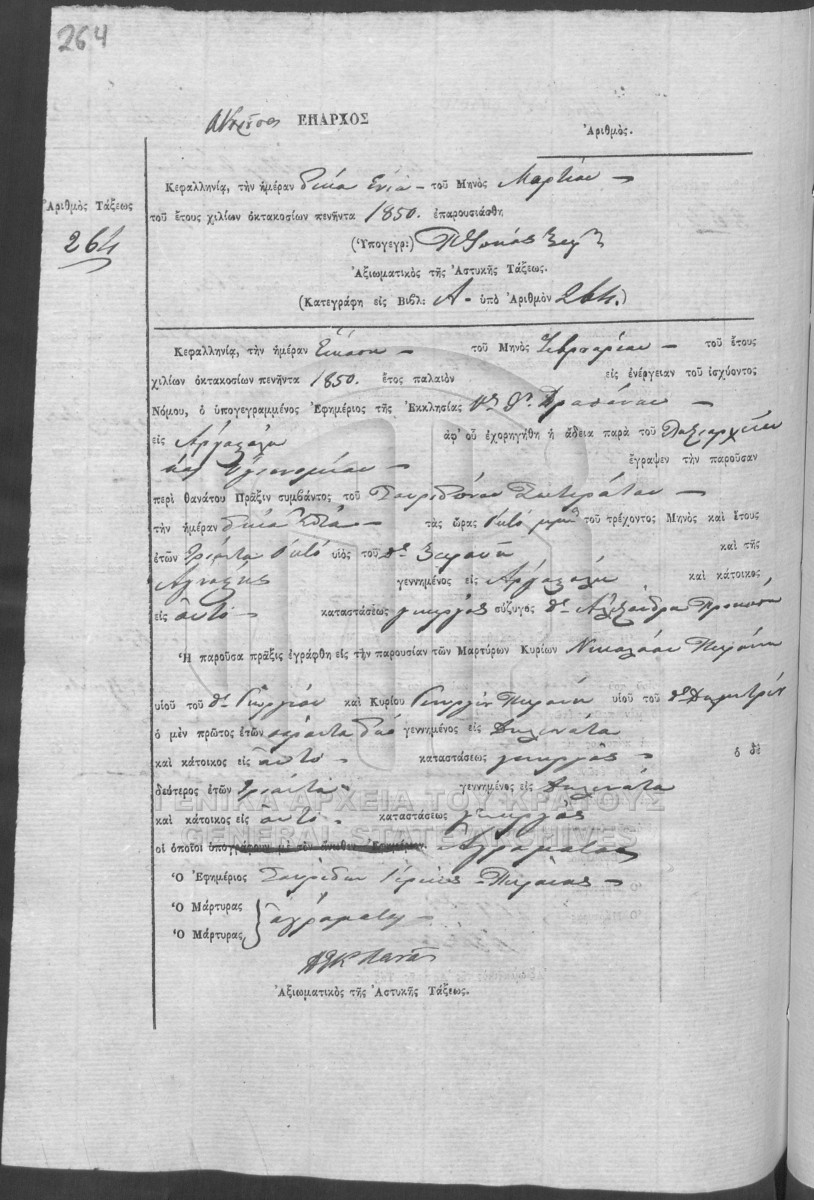 264
ΕΠΑΡΧΟΣ
Ἀριθμὸς.
Ἀριθμὸς Τάξεως
264
Κεφαλληνίᾳ, τὴν ἡμέραν δέκα ἐνία τοῦ Μηνὸς Μαρτίου
τοῦ ἔτους χιλίων ὀκτακοσίων πενῆντα 1850. ἐπαρουσιάσθη
(Ὑπογεγρ:)
Ἀξιωματικὸς τῆς Ἀστυκῆς Τάξεως.
(Κατεγράφη εἰς Βιβλ: Α. ὑπὸ Ἀριθμὸν 264.)
Κεφαλληνίᾳ, τὴν ἡμέραν Εἴκοση τοῦ Μηνὸς Φεβρουαρίου τοῦ ἔτους
χιλίων ὀκτακοσίων πενῆντα 1850. ἔτος παλαιὸν εἰς ἐνέργειαν τοῦ ἰσχύοντος
Νόμου, ὁ ὑπογεγραμμένος Ἐφημέριος τῆς Ἐκκλησίας Δραπάνου
εἰς Ἀργοστόλι ἀφ' οὗ ἐχορηγήθη ἡ ἄδεια παρὰ τοῦ
καὶ Ὑγιονομίου ἔγραψεν τὴν παροῦσαν
περὶ θανάτου Πρᾶξιν συμβάντος τοῦ Σπυρίδωνος
τὴν ἡμέραν δέκα ἑπτά τὰς ὥρας ὀκτό τοῦ τρέχοντος Μηνὸς καὶ ἔτους
ἐτῶν τριάντα ὀκτό υἱὸς τοῦ καὶ τῆς
γεννημένος εἰς Ἀργοστόλι καὶ κάτοικος
εἰς αὐτό καταστάσεως γεωργός σύζυγος Ἀλεξάνδρα
Ἡ παροῦσα πρᾶξις ἐγράφθη εἰς τὴν παρουσίαν τῶν Μαρτύρων Κυρίων Νικολάου
υἱοῦ τοῦ Γεωργίου καὶ Κυρίου Γεωργίου υἱοῦ τοῦ Δημητρίου
ὁ μὲν πρῶτος ἐτῶν σαράντα δύο γεννημένος εἰς Διλινάτα
καὶ κάτοικος εἰς αὐτό καταστάσεως γεωργός ὁ δὲ
δεύτερος ἐτῶν τριάντα γεννημένος εἰς Διλινάτα
ΓΕΝΙΚΑ ΑΡΧΕΙΑ ΤΟΥ ΚΡΑΤΟΥΣ
καὶ κάτοικος εἰς αὐτό καταστάσεως γεωργός
GENERAL STATE ARCHIVES
οἱ ὁποῖοι ὑπογράφουν μὲ τὸν ἄνωθεν Ἐφημέριον ἀγράματος
Ὁ Ἐφημέριος Σπυρίδων Ἱερεὺς
Ὁ Μάρτυρας
Ὁ Μάρτυρας ἀγράματη
Ἀξιωματικὸς τῆς Ἀστυκῆς Τάξεως.